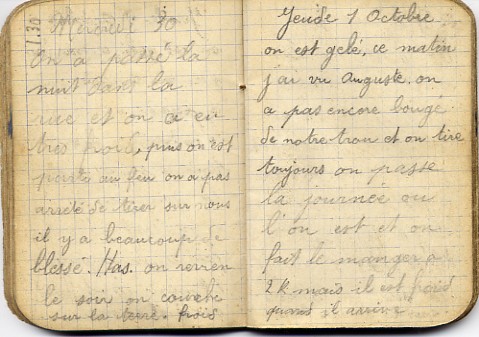 Mercredi 30
on a passé la
nuit dans la
rue et on a eu
très froid, puis on est
partis au feu on a pas
arrété de tirer sur nous
il y a beaucoup de
blessé. Has. on revien
le soir on couche
sur la terre. frois
Jeude 1 Octobre
on est gelé, ce matin
j'ai vu Auguste. on
a pas encore bougé
de notre trou et on tire
toujours on passe
la journée ou
l'on est et on
fait le manger a
2 k mais il est frois
quand il arrive